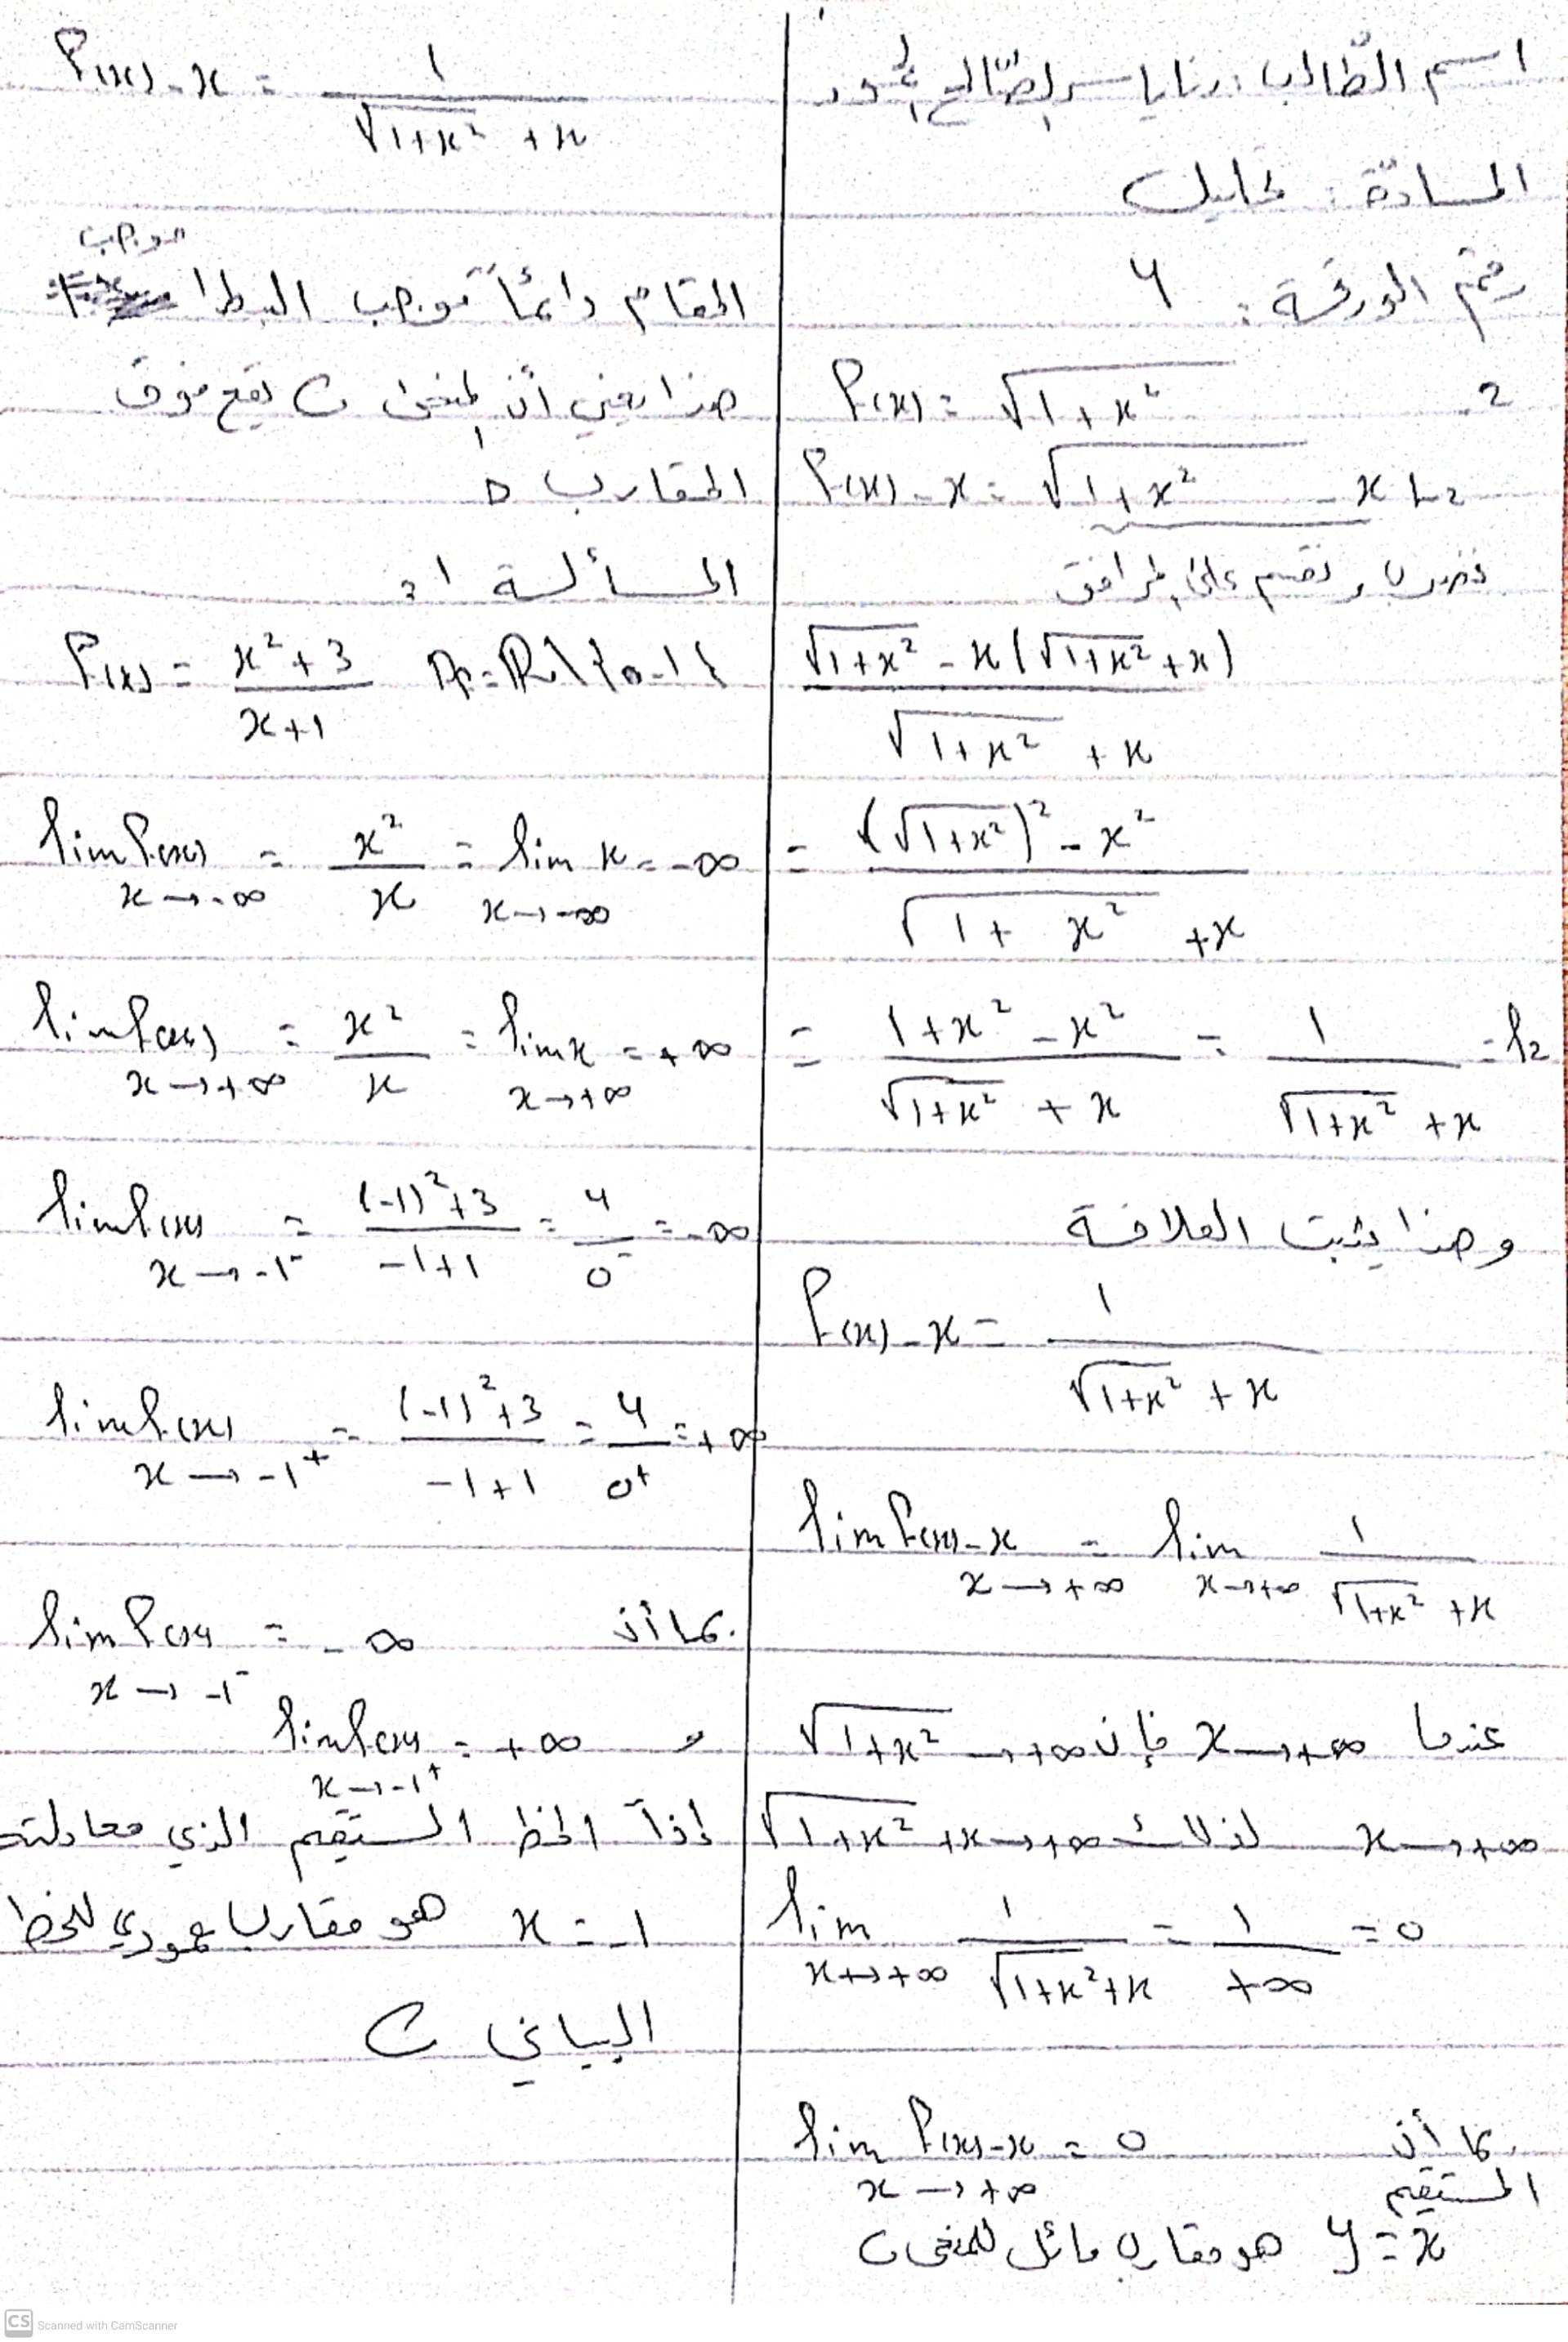 اسم الطّالب: رنا ياسر الصّالح
المادّة: تحليل
رقم الورقة: 4
2
f(x) = √(1+x²)
f(x) - x = √(1+x²) - x L2
نضرب و نقسم على المرافق
(√(1+x²) - x (√(1+x²) + x)) / (√(1+x²) + x)
= ((√(1+x²))² - x²) / (√(1+x²) + x)
= (1+x² - x²) / (√(1+x²) + x) = 1 / (√(1+x²) + x) = l2
وهذا يثبت العلاقة
f(x) - x = 1 / (√(1+x²) + x)
lim f(x) - x = lim 1 / (√(1+x²) + x)
x → +∞ x → +∞
عندما x → +∞ فإن √(1+x²) → +∞
x → +∞ لذلك √(1+x²) + x → +∞
lim 1 / (√(1+x²) + x) = 1 / +∞ = 0
x → +∞
بما أن lim f(x) - x = 0
x → +∞
المستقيم
y = x هو مقارب مائل للمنحى C
f(x) - x = 1 / (√(1+x²) + x)
موجب
المقام دائماً موجب البسط
هذا يعني أن المنحى C يقع فوق
المقارب
المسألة 1:
f(x) = (x² + 3) / (x+1) Df = R\{-1}
lim f(x) = x² / x = lim x = -∞
x → -∞ x → -∞
lim f(x) = x² / x = lim x = +∞
x → +∞ x → +∞
lim f(x) = ((-1)² + 3) / (-1+1) = 4 / 0⁻ = -∞
x → -1⁻
lim f(x) = ((-1)² + 3) / (-1+1) = 4 / 0⁺ = +∞
x → -1⁺
بما أن lim f(x) = -∞
x → -1⁻
و lim f(x) = +∞
x → -1⁺
إذاً الخط المستقيم الذي معادلته
x = -1 هو مقارب عمودي للخط
البياني C
CS Scanned with CamScanner